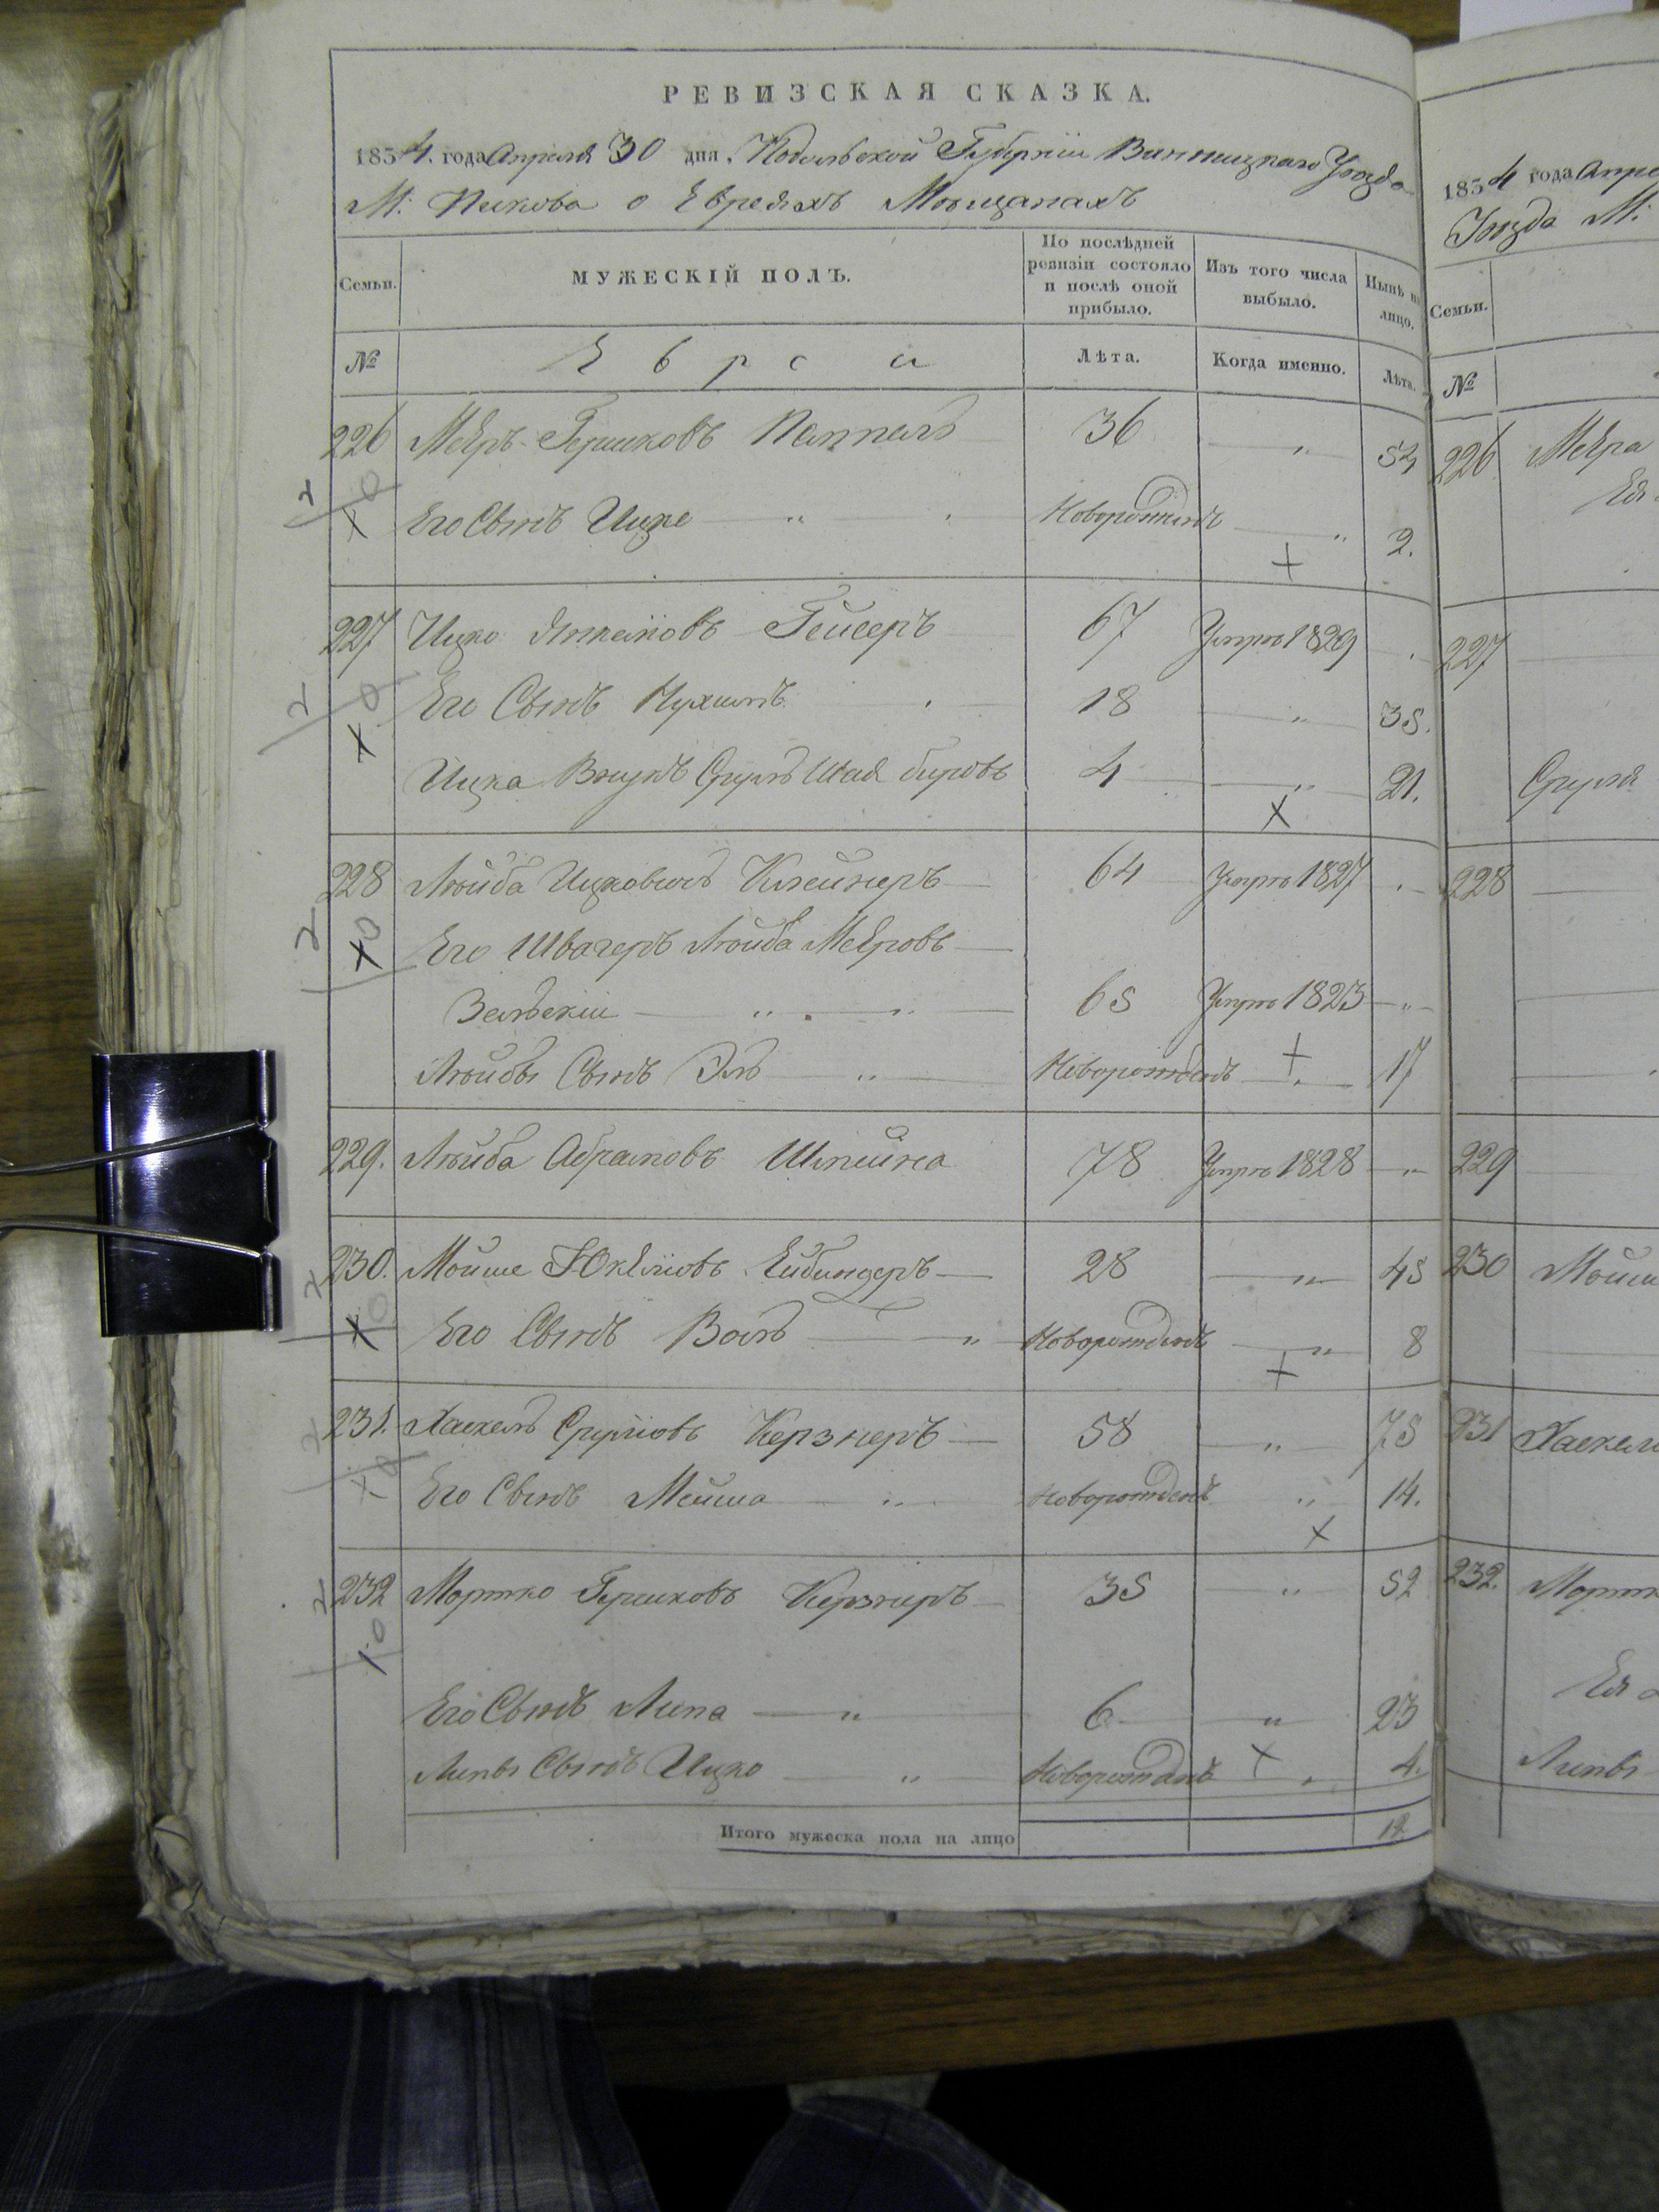 РЕВИЗСКАЯ СКАЗКА.
1854. года Апреля 30 дня. Подольской Губернiи Винницкаго Уѣзда
М: Пикова о Евреяхъ Мѣщанахъ
Семьи.
МУЖЕСКIЙ ПОЛЪ.
По послѣдней ревизiи состояло и послѣ оной прибыло.
Изъ того числа выбыло.
Нынѣ на лицо.
№
Евреи
Лѣта.
Когда именно.
Лѣта.
226 Мееръ Гершковъ 36 " 53
Его Сынъ Ицко " Новорожденъ " 2.
227 Ицко Янкелiовъ Гейсеръ 67 Умръ 1829
Его Сынъ Нухимъ 18 " 35.
Ицка Внукъ Сруль 4 " 21.
228 Лейба Ицковичъ Клейнеръ 64 Умръ 1827
Его Швагеръ Лейба Мееровъ
Зельскiи " " 65 Умръ 1823 "
Лейбы Сынъ Эль " Новорожденъ 17
229. Лейба Абрамовъ 78 Умръ 1828 "
230. Мойше Юкелiовъ 28 " 45
Его Сынъ " Новорожденъ " 8
231. Хаскель Срулiовъ Керзнеръ 58 " 75
Его Сынъ Мейша " Новорожденъ " 14.
232 Мортко Гершковъ Керзнеръ 35 " 52
Его Сынъ Липа " 6 " 23
Липы Сынъ Ицко " Новорожденъ 4.
Итого мужеска пола на лицо 12
1854 года Апре
Уѣзда М:
Семьи.
№
226 Меера
Ея
227
Сруля
228
229
230 Мойш
231 Хаскеля
232. Мортк
Ея
Липы